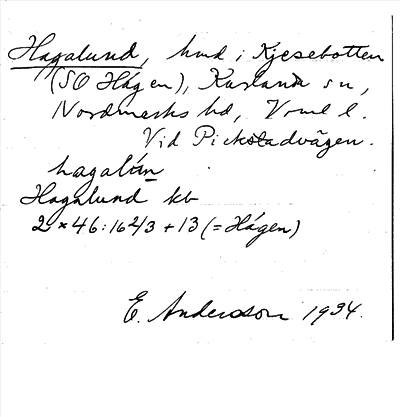 Hagalund, hmd i Kjesebotten
(SO Hågen), Karlanda sn,
Nordmarks hd, Vrml l.
Vid Pickstadvägen.
hagalúnn
Hagalund kb
2 × 46:16 2/3 + 13 (= Hågen)
E. Anderson 1934.